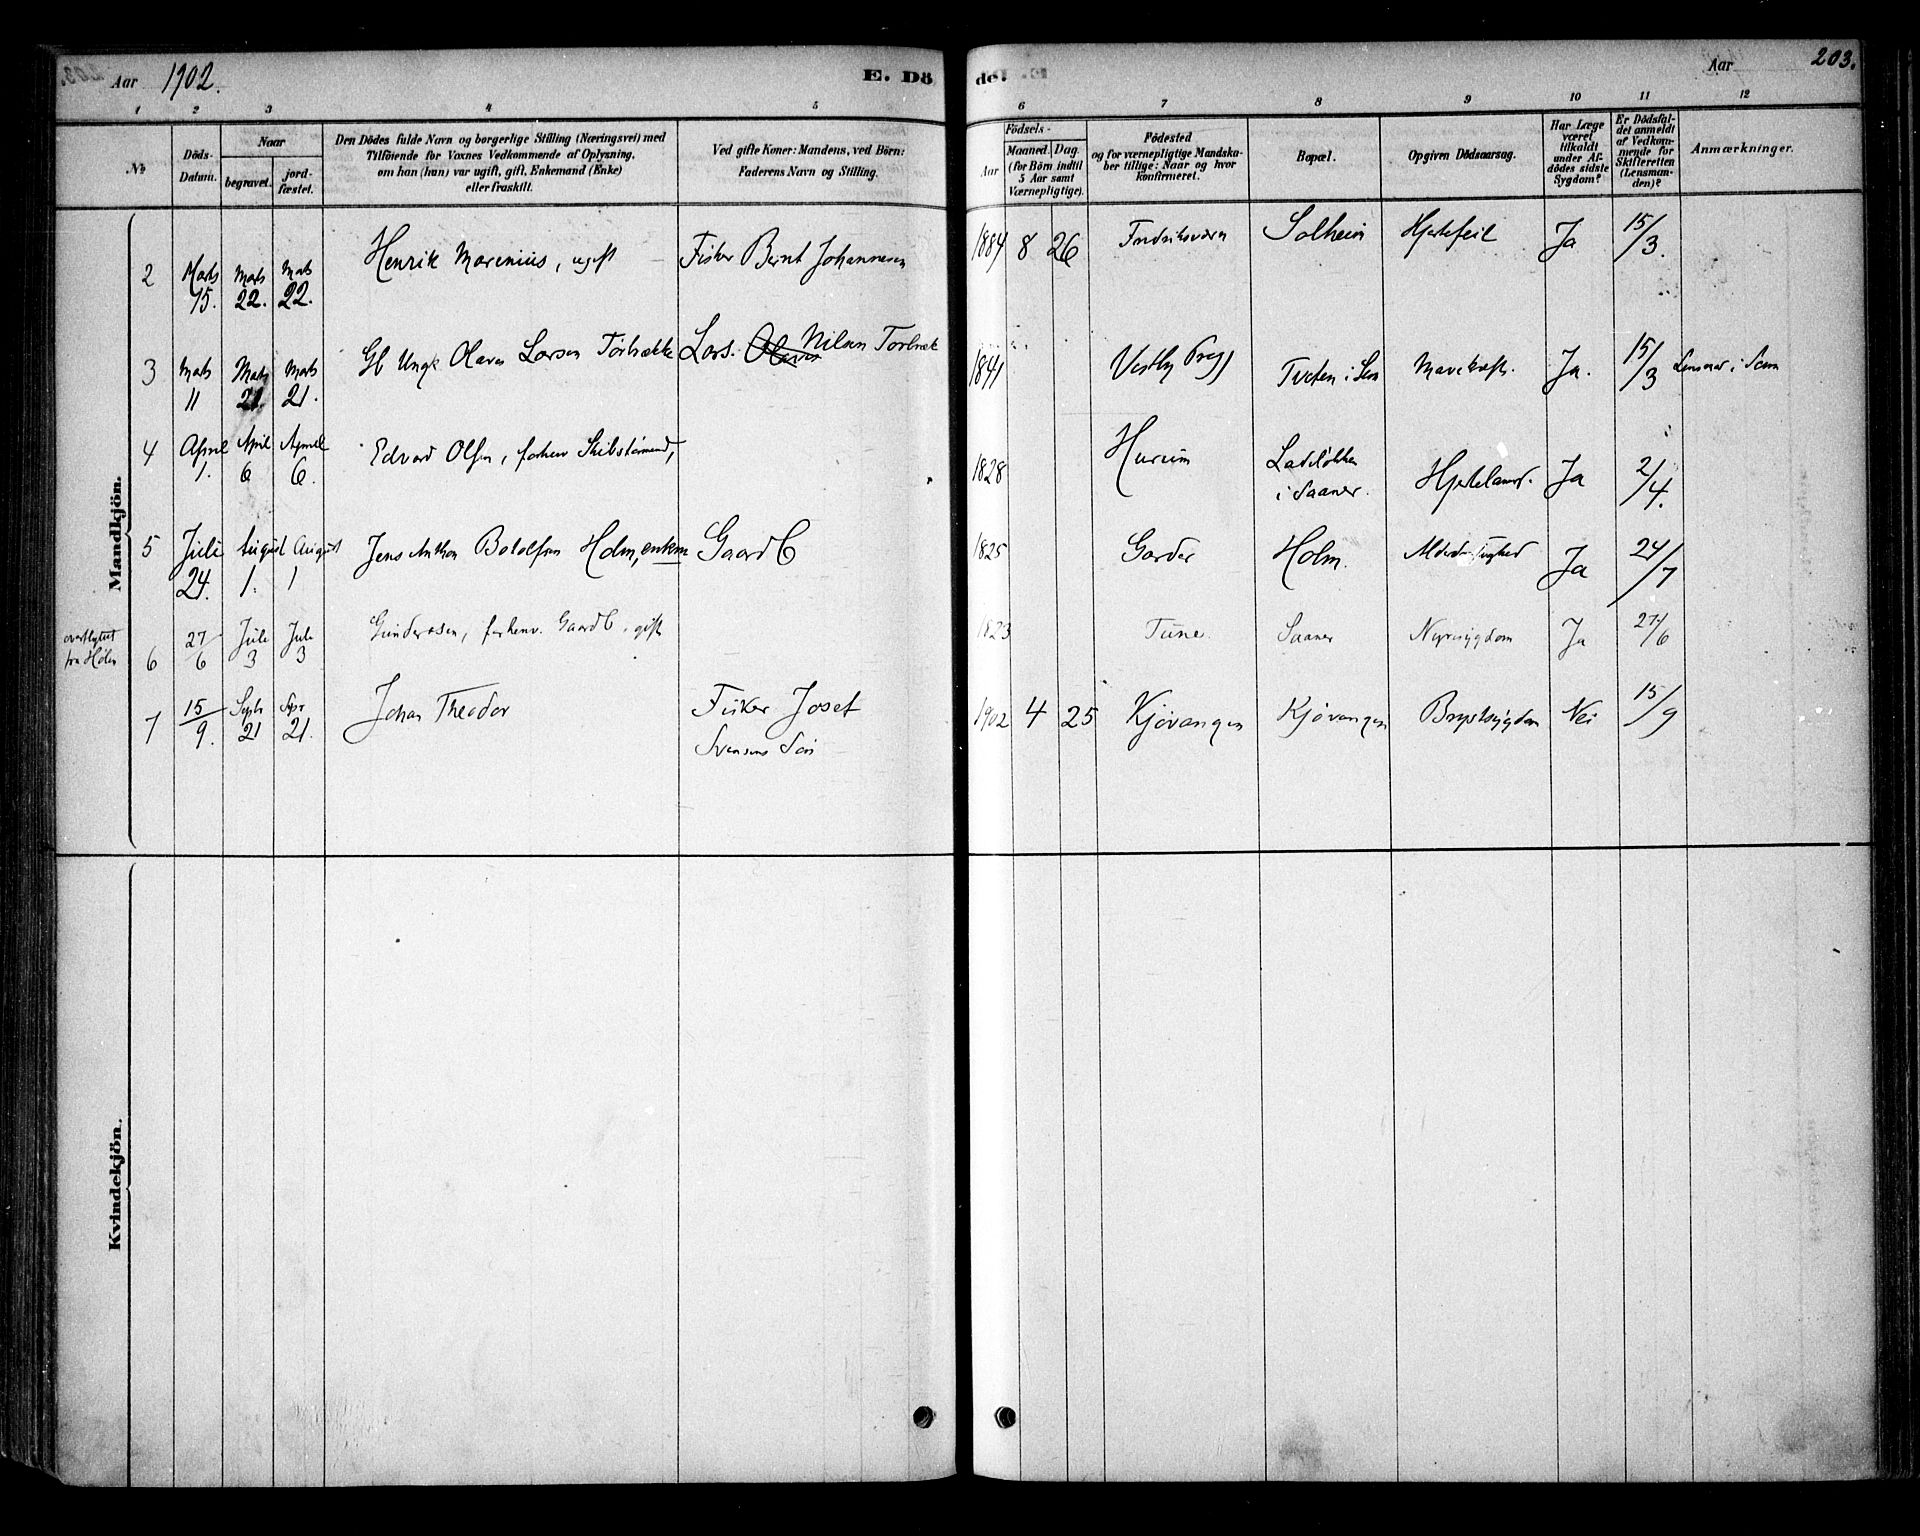 Aar 1902.
E. Dö
de.
Aar
203.
1 2 3 4 5 6 7 8 9 10 11 12
No
Döds-Datum.
Naar
begravet.
jord-fæstet.
Den Dödes fulde Navn og borgerlige Stilling (Næringsvei) med
Tilföiende for Voxnes Vedkommende af Oplysning,
om han (hun) var ugift, gift, Enkemand (Enke)
eller fraskilt.
Ved gifte Koner: Mandens, ved Börn:
Faderens Navn og Stilling.
Födsels-
Aar
Maaned. Dag.
(for Börn indtil
5 Aar samt
Værnepligtige).
Födested
og for værnepligtige Mandska-
ber tillige: Naar og hvor
konfirmeret.
Bopæl.
Opgiven Dödsaarsag.
Har Læge
været
tilkaldt
under Af-
dödes sidste
Sygdom?
Er Dödsfal-
det anmeldt
af Vedkom-
mende for
Skifteretten
(Lensman-
den)?
Anmærkninger.
Mandkjön.
2 Marts 15. Marts 22. Marts 22. Henrik Marenius, ugift Fisker Bernt Johannesen 1884 8 26 Fredriksværn Solheim Hjertefeil Ja 15/3.
3 Marts 11 Marts 21. Marts 21. Gl Ungk Olaves Larsen Torbække Lars. Olaves Nilsen Torbæk 1841 Vestby Prgj Tveten i Sem Mavekræft. Ja. 15/3 Lensmar i Sem
4 April 1. April 6 April 6. Edvard Olsen, forhenv Skibstømmd, 1828 Hurum Ladeløkken i Saaner. Hjertelamd. Ja 2/4.
5 Juli 24. August 1. August 1 Jens Anthon Bololfsen Holm, enkm GaardB 1825 Garder Holm. Alderdomssvaghed Ja 24/7
overflyttet
fra Hølen
6 27/6 Juli 3 Juli 3 Gundersen, forhenv. GaardB. gift 1823 Tune. Saaner Nyresygdom Ja 27/6
7 15/9. Septr 21 Sepr 21. Johan Theodor Fisker Josef Svensens Søn 1902 4 25 Kjøvangen Kjøvangen Brystsygdom Nei 15/9
Kvindekjön.